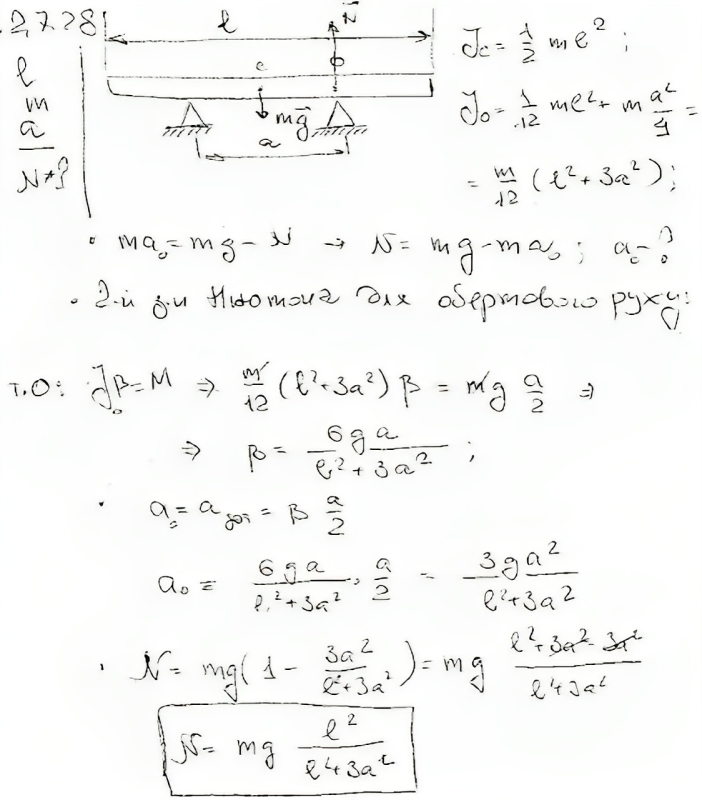 2.7.28
l
m
a
N-?
l
N
c
mg
a
J_c = 1/2 ml² ;
J_0 = 1/12 ml² + m a²/4 =
= m/12 (l² + 3a²) ;
• ma_c = mg - N → N = mg - ma_c ; a_c - ?
• 2-й з-н Ньютона для обертового руху:
т.О: J_0 β = M ⇒ m/12 (l² + 3a²) β = mg a/2 ⇒
⇒ β = 6ga / (l² + 3a²) ;
• a_c = a_дот = β a/2
a_c = 6ga / (l² + 3a²) · a/2 = 3ga² / (l² + 3a²)
• N = mg (1 - 3a² / (l² + 3a²)) = mg (l² + 3a² - 3a²) / (l² + 3a²)
N = mg l² / (l² + 3a²)